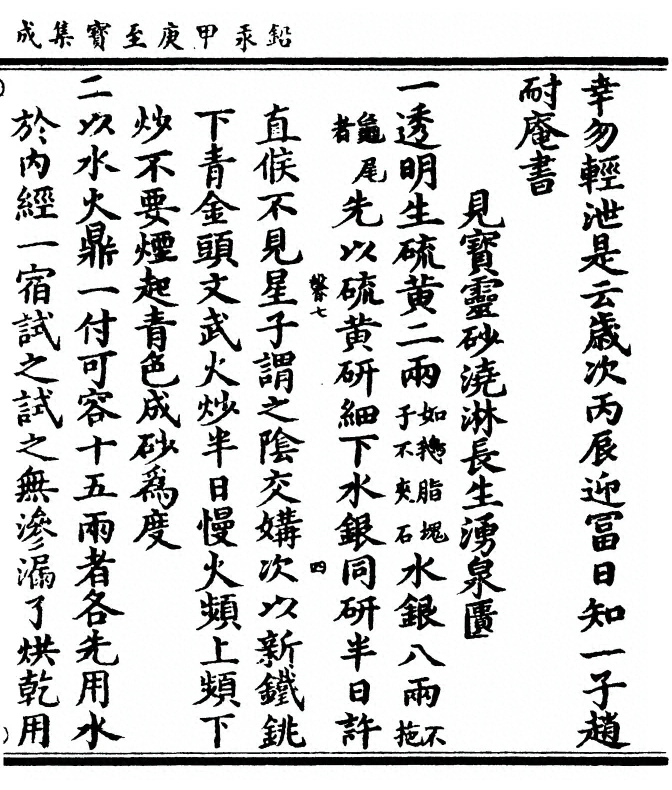 鉛汞甲庚至寶集成
幸勿輕泄是云歲次丙辰迎冨日知一子趙
耐庵書
見寶靈砂澆淋長生湧泉匱
一透明生硫黄二兩如鵝脂塊子不夾石水銀八兩不拖
龜尾者先以硫黄研細下水銀同研半日許
馨七 四
直候不見星子謂之陰交媾次以新鐵銚
下青金頭文武火炒半日慢火頻上頻下
炒不要煙起青色成砂爲度
二以水火鼎一付可容十五兩者各先用水
於内經一宿試之試之無滲漏了烘乾用